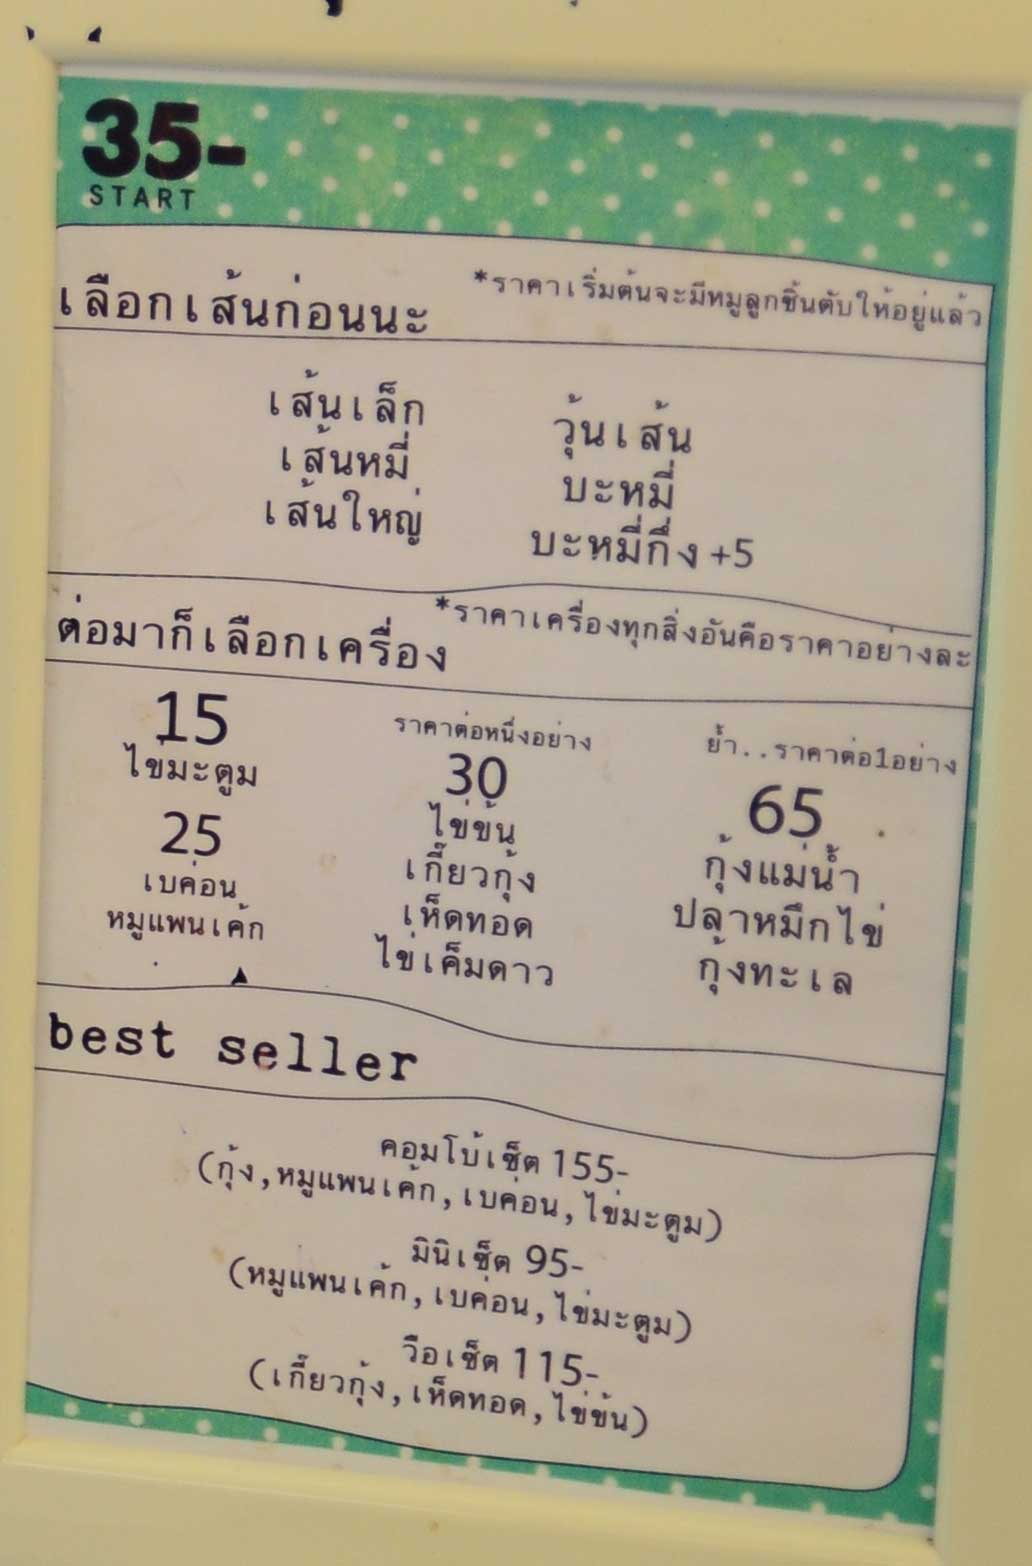 35-
START
เลือกเส้นก่อนนะ
*ราคาเริ่มต้นจะมีหมูลูกชิ้นตับให้อยู่แล้ว
เส้นเล็ก
เส้นหมี่
เส้นใหญ่
วุ้นเส้น
บะหมี่
บะหมี่กึ่ง +5
ต่อมาก็เลือกเครื่อง
*ราคาเครื่องทุกสิ่งอันคือราคาอย่างละ
15
ไข่มะตูม
25
เบค่อน
หมูแพนเค้ก
ราคาต่อหนึ่งอย่าง
30
ไข่ข้น
เกี๊ยวกุ้ง
เห็ดทอด
ไข่เค็มดาว
ย้ำ..ราคาต่อ1อย่าง
65
กุ้งแม่น้ำ
ปลาหมึกไข่
กุ้งทะเล
best seller
คอมโบ้เซ็ต 155-
(กุ้ง,หมูแพนเค้ก,เบค่อน,ไข่มะตูม)
มินิเซ็ต 95-
(หมูแพนเค้ก,เบค่อน,ไข่มะตูม)
วีอเซ็ต 115-
(เกี๊ยวกุ้ง,เห็ดทอด,ไข่ข้น)